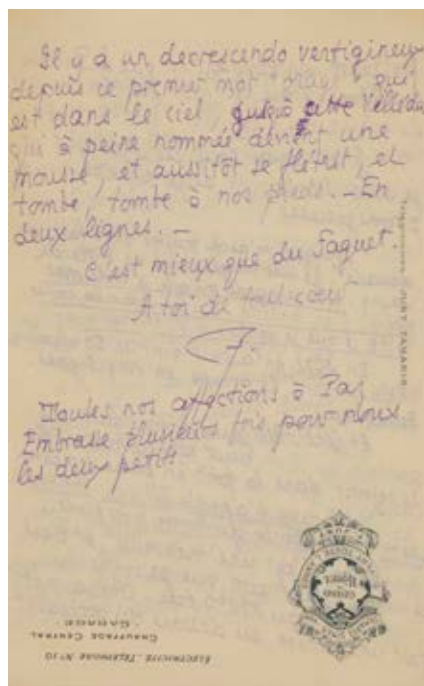 Il y a un decrescendo vertigineux
depuis ce premier mot " qui
est dans le ciel, jusqu'à cette
qui à peine nommée devient une
mousse, et aussitôt se flétrit, et
tombe, tombe à nos pieds. – En
deux lignes. –
C'est mieux que du Faguet.
A toi de tout cœur
F.
Toutes nos affections à
Embrasse plusieurs fois pour nous
les deux petits
CHAUFFAGE CENTRAL
- GARAGE -
ÉLECTRICITÉ - TÉLÉPHONE N° 10